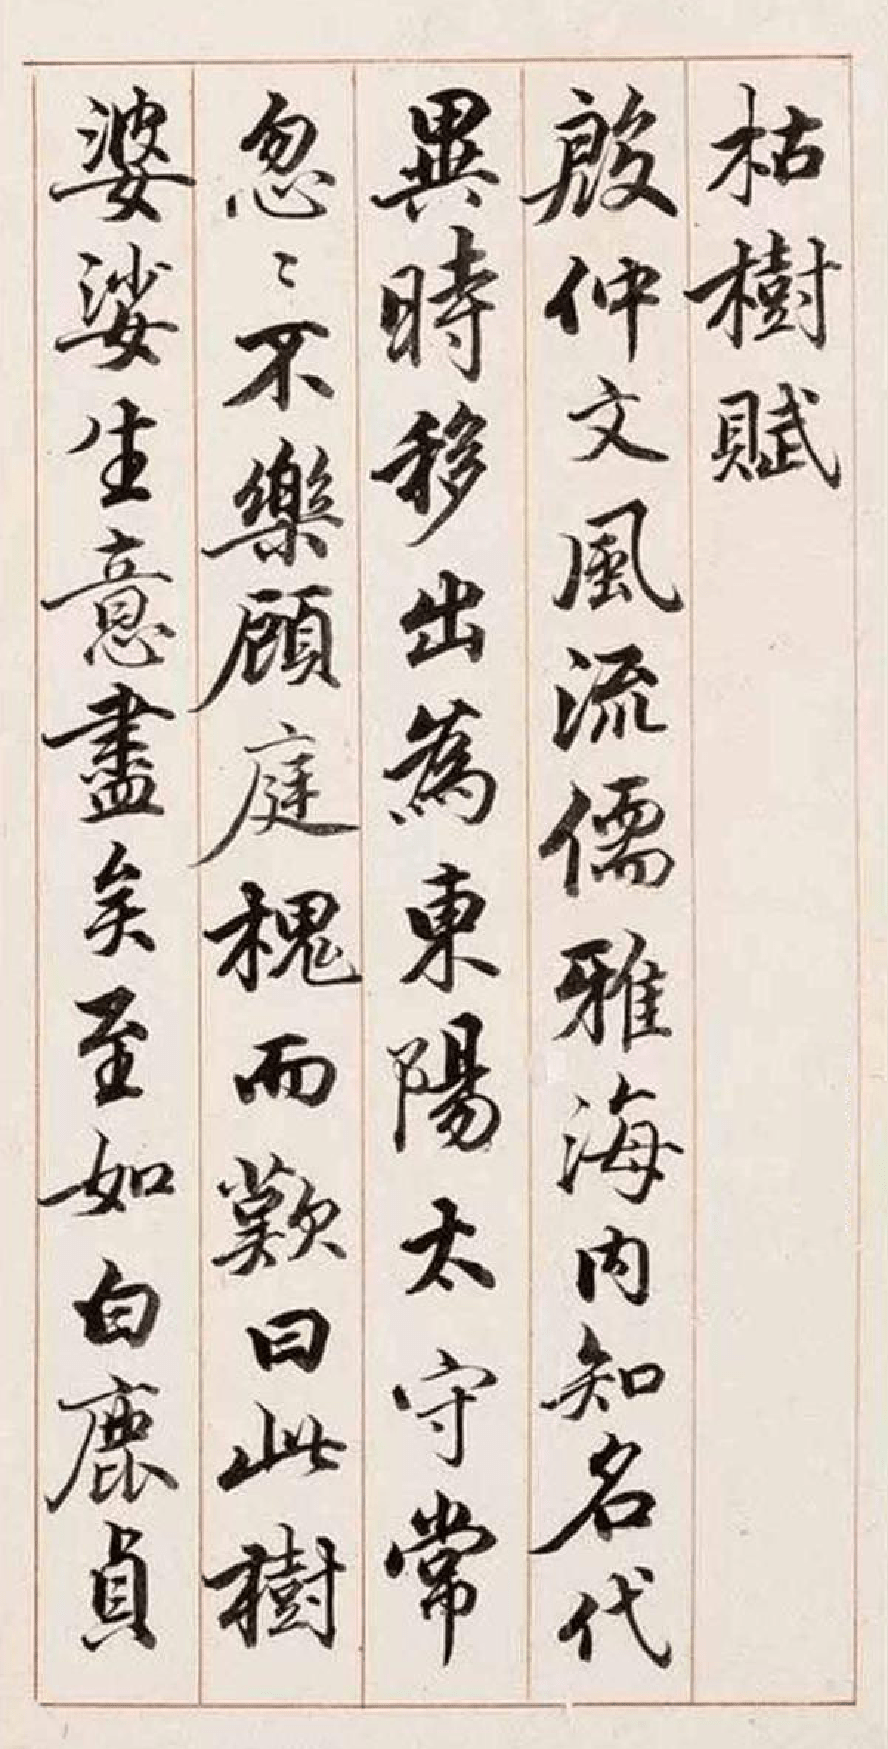 枯樹賦
殷仲文風流儒雅海內知名代
異時移出為東陽太守常
忽〻不樂顧庭槐而歎曰此樹
婆娑生意盡矣至如白鹿貞